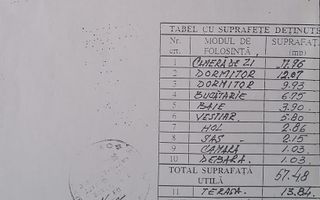 TABEL CU SUPRAFEȚE DEȚINUTE
Nr. crt. MODUL DE FOLOSINȚĂ SUPRAFAȚ (mp)
1 CAMERĂ DE ZI
2 DORMITOR 12.07
3 DORMITOR 9.93
4 BUCĂTĂRIE 6.75
5 BAIE 3.90
6 VESTIAR 5.80
7 HOL 2.86
8 SAS 2.15
9 CĂMARĂ 1.03
10 DEBARA 1.03
TOTAL SUPRAFAȚA UTILĂ 57.48
11 TERASA 13.84